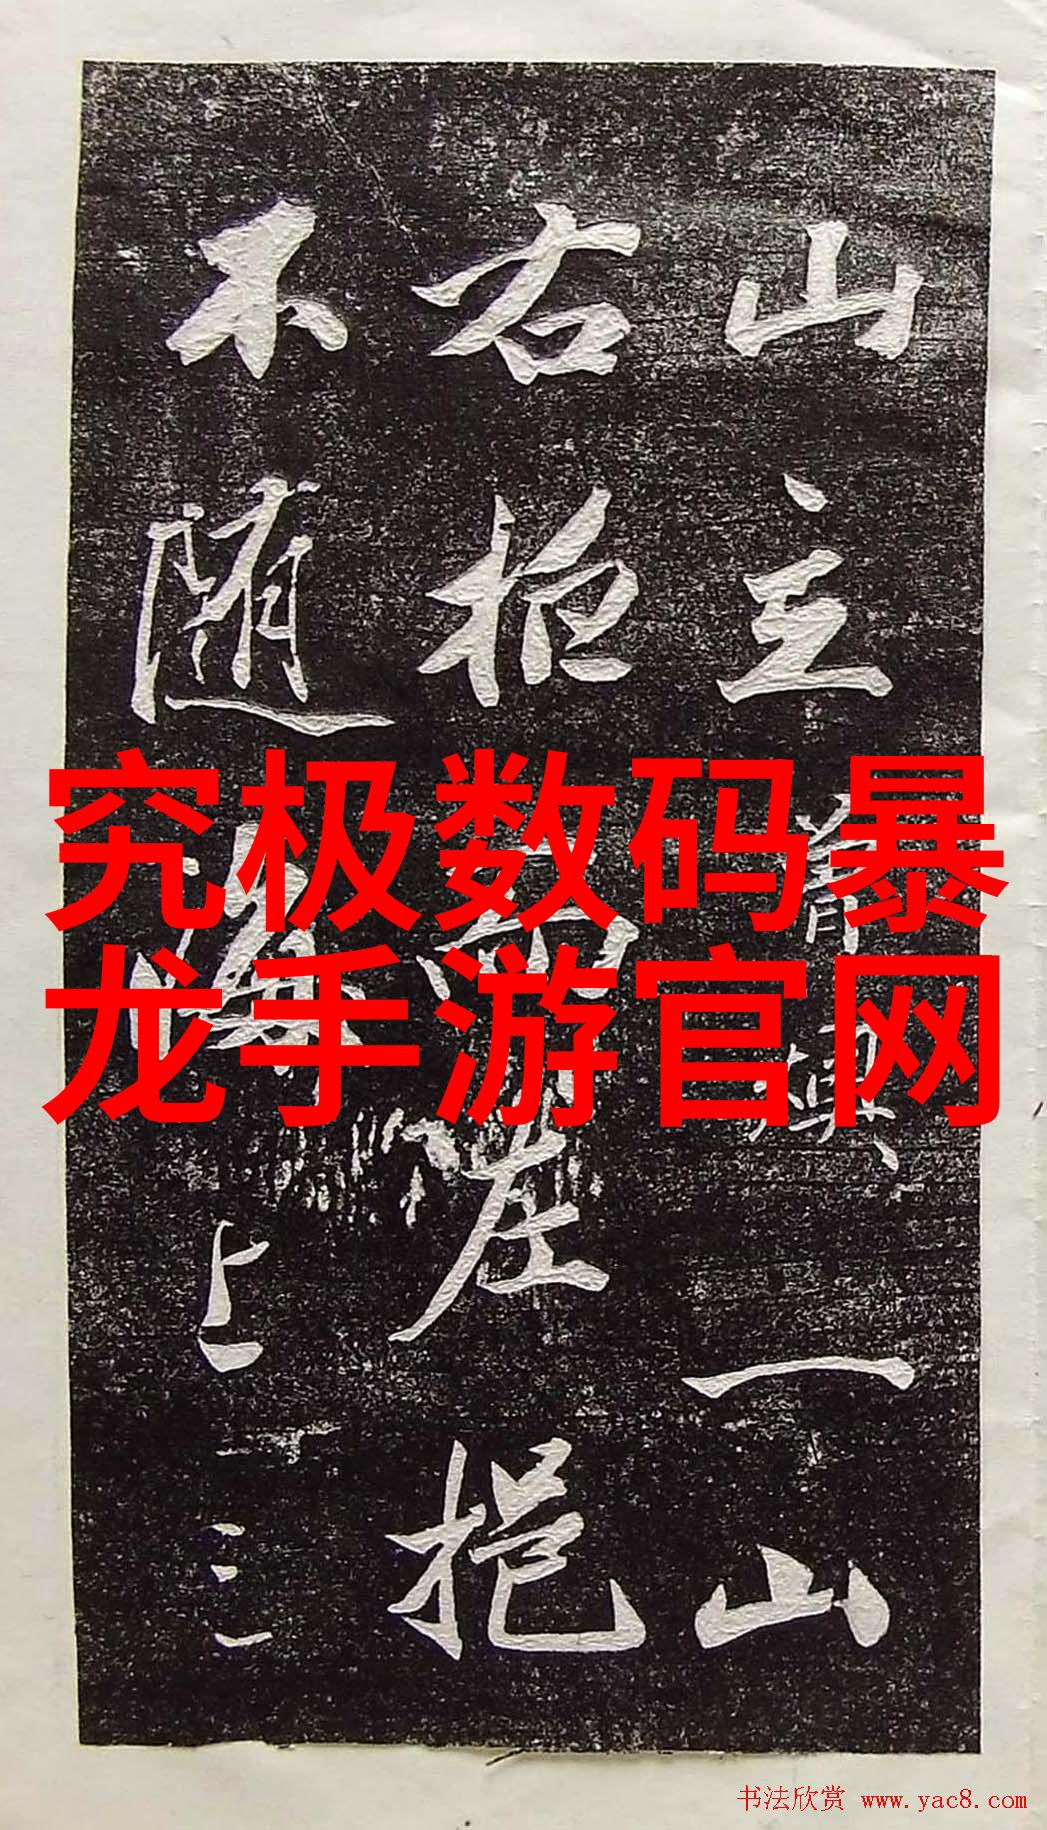 山主一山
右左挹
不随上三
究极数码暴
龙手游官网
书法欣赏 www.yac8.com